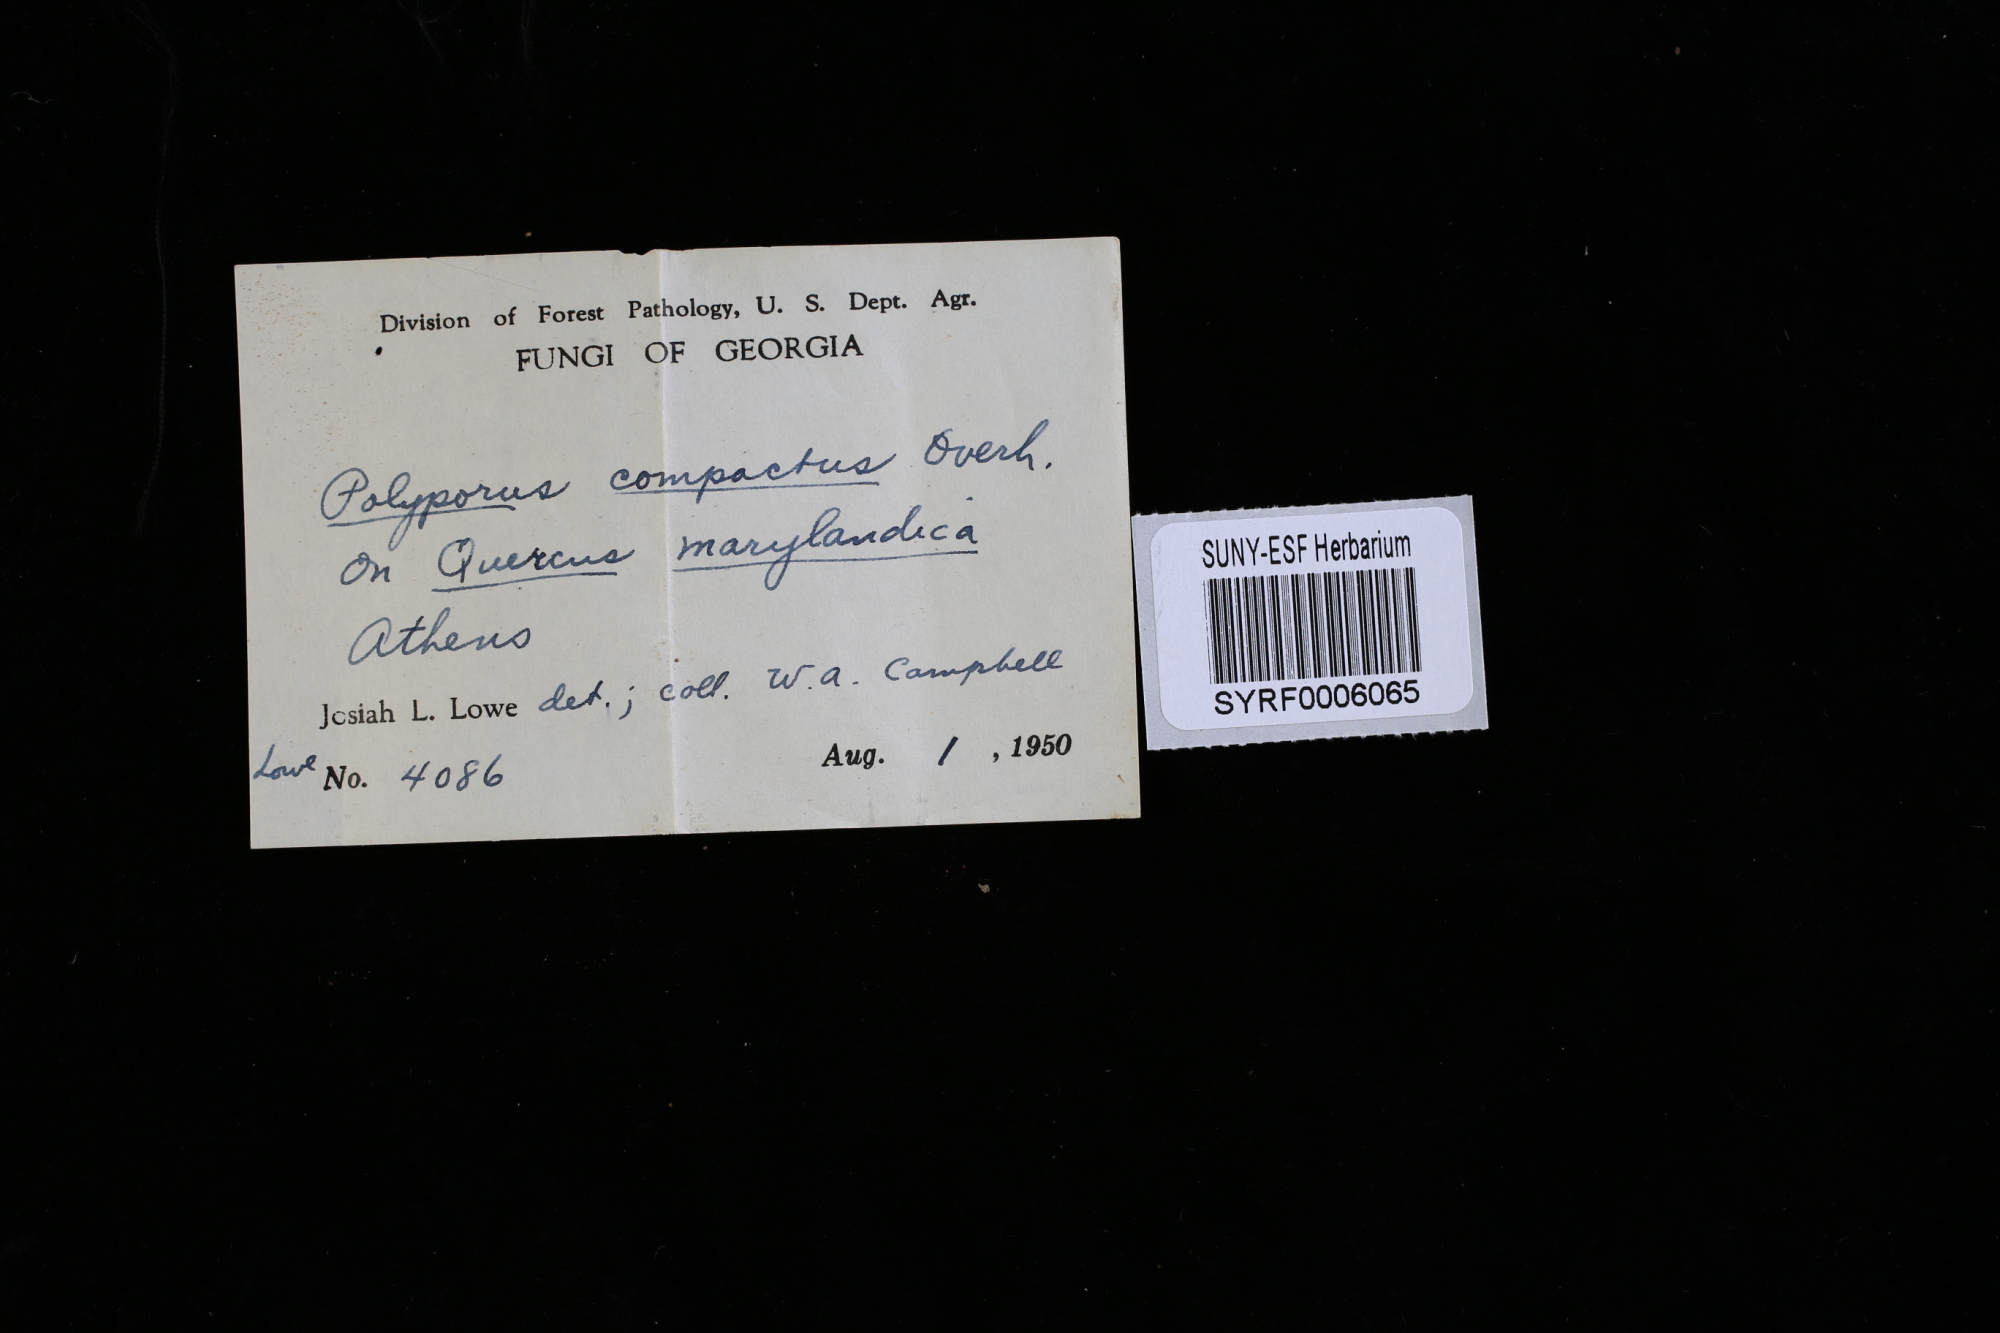 Division of Forest Pathology, U. S. Dept. Agr.
FUNGI OF GEORGIA
Polyporus compactus Overh.
On Quercus marylandica
Athens
Josiah L. Lowe det.; coll. W.A. Campbell
Lowe No. 4086 Aug. 1, 1950
SUNY-ESF Herbarium
SYRF0006065